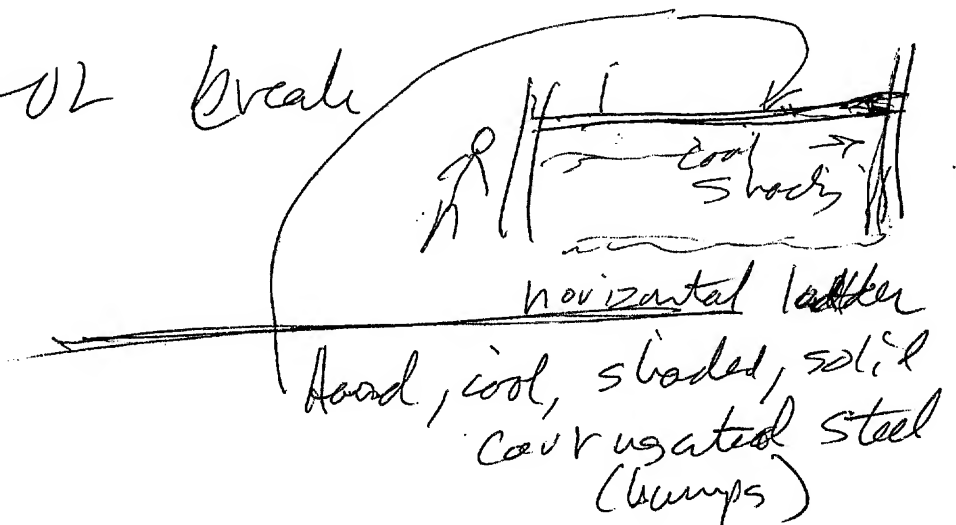 break
cool
shady
horizontal ladder
Hard, cool, shaded, solid
corrugated steel
(bumps)